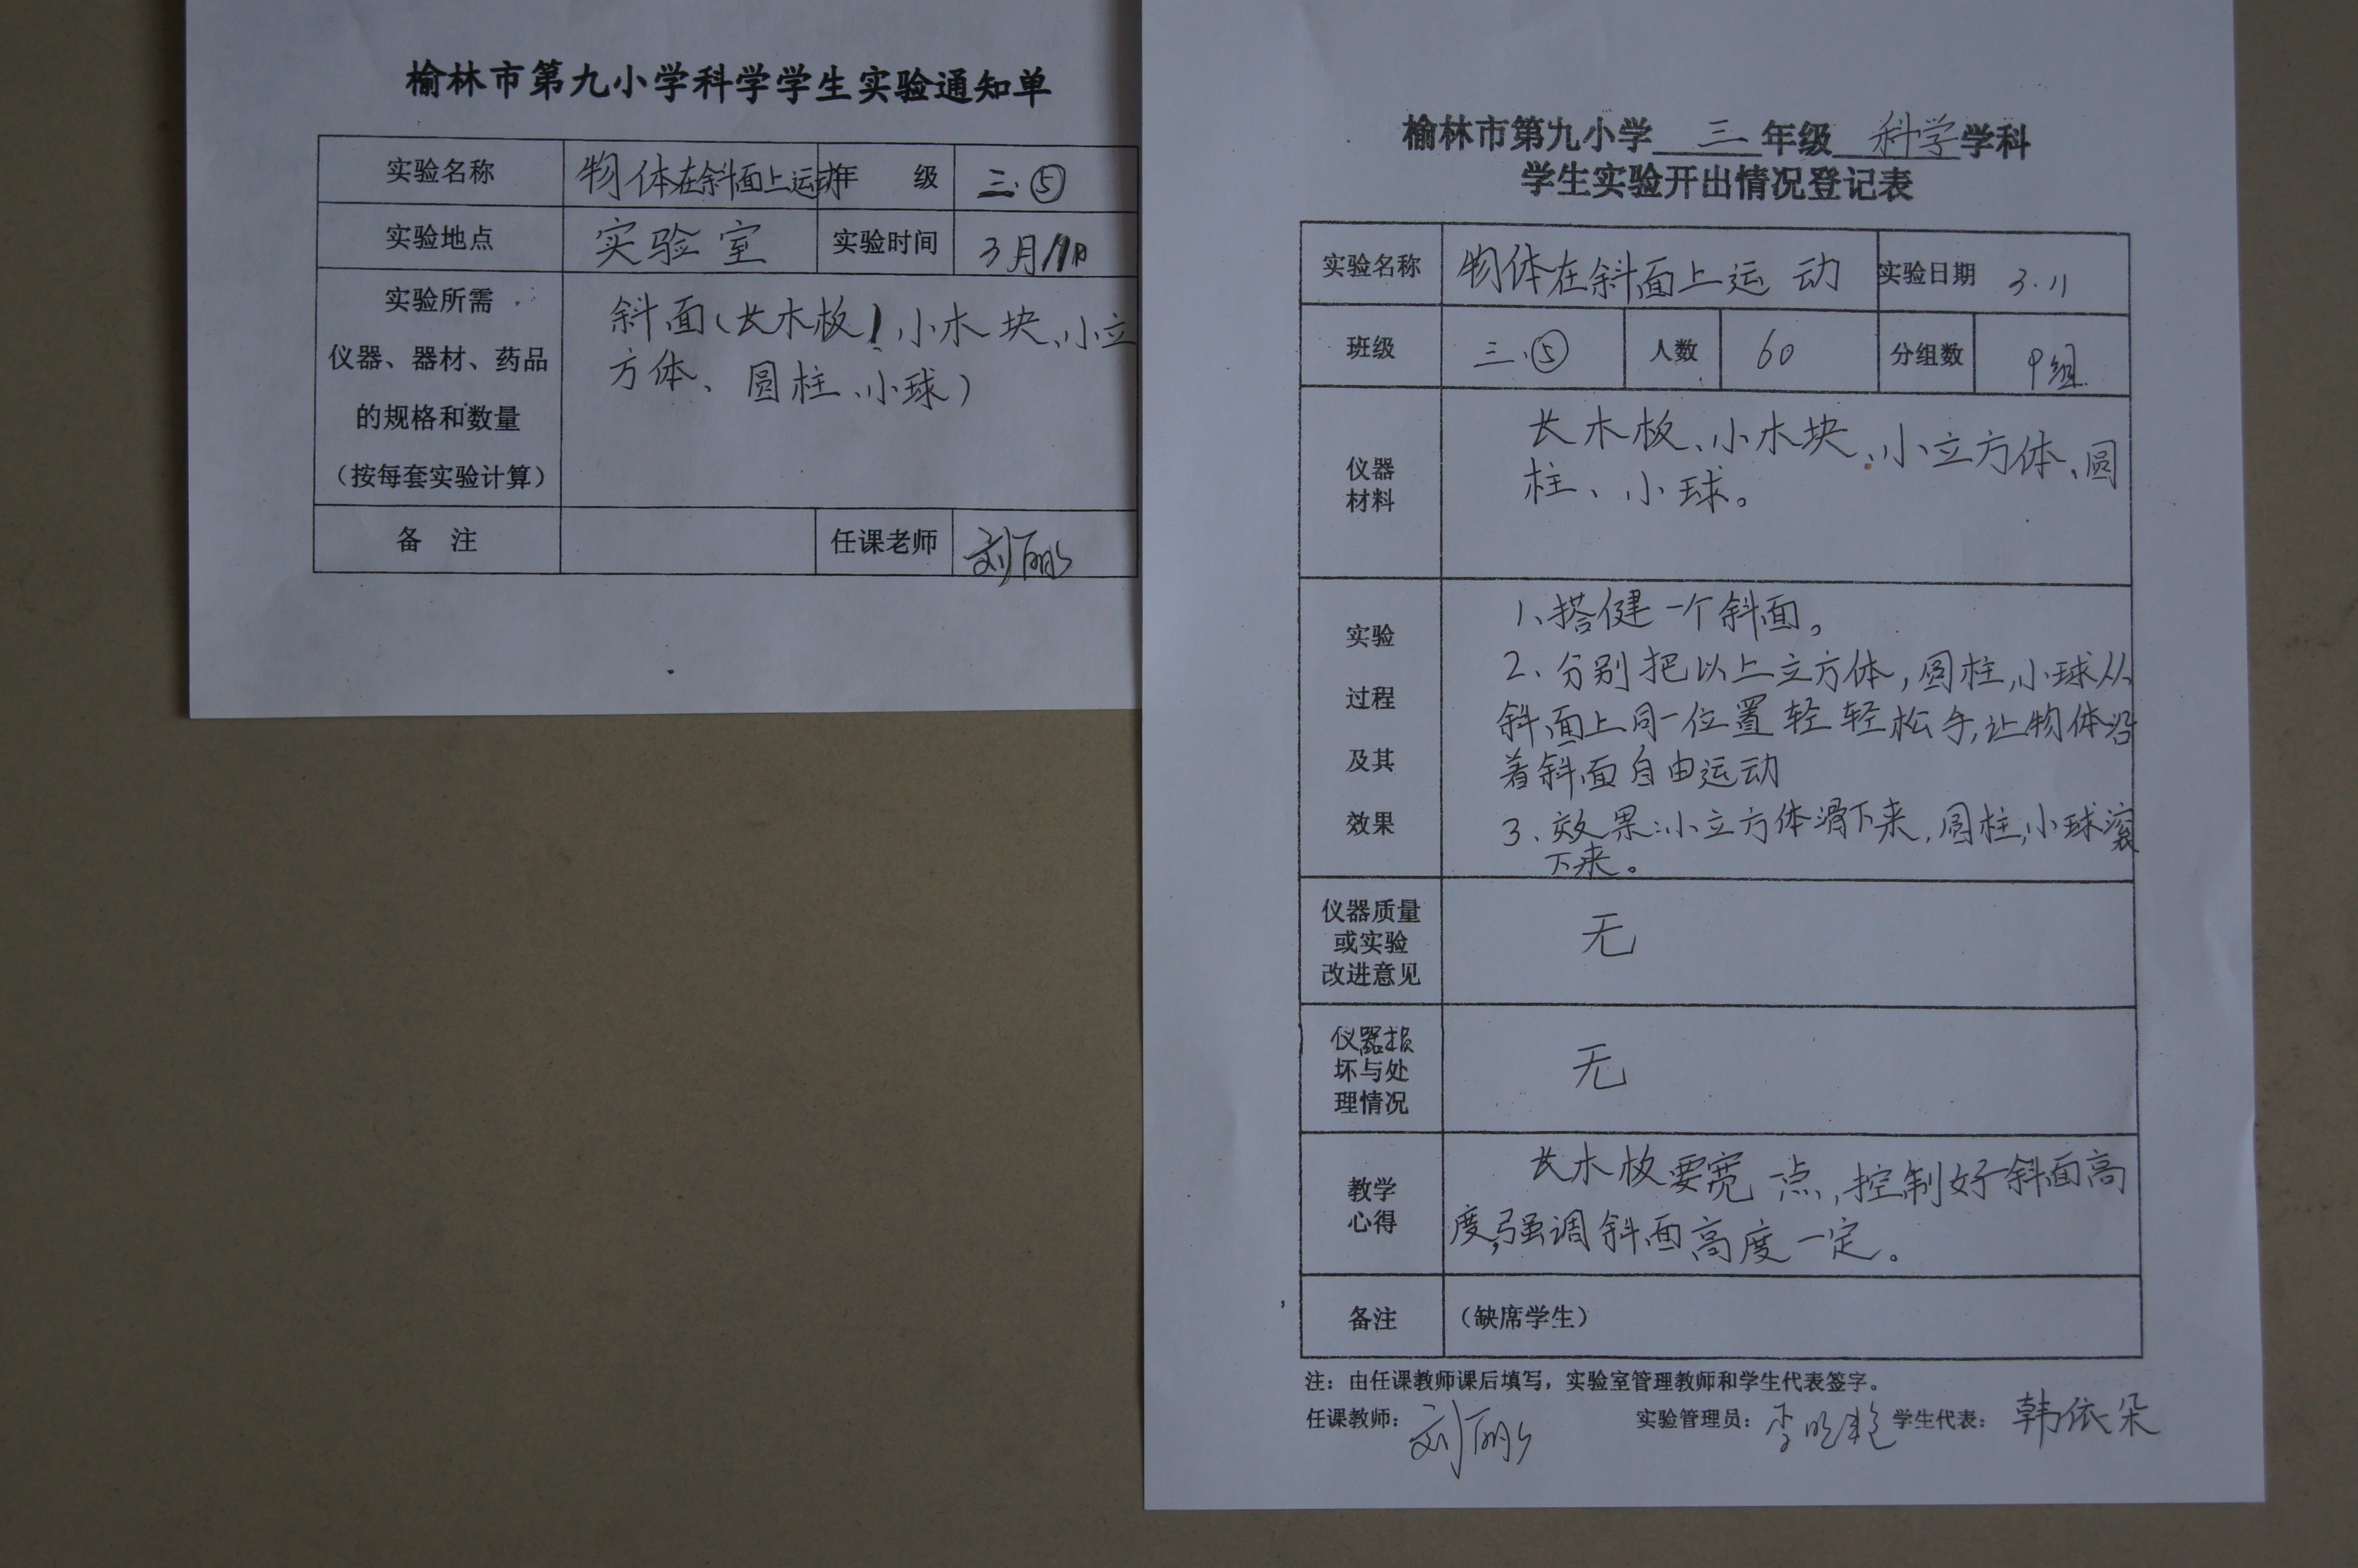 榆林市第九小学科学学生实验通知单
实验名称 物体在斜面上运动 年 级 三.⑤
实验地点 实验室 实验时间 3月11日
实验所需
仪器、器材、药品
的规格和数量
（按每套实验计算）
斜面(长木板)、小木块、小立
方体、圆柱、小球)
备 注 任课老师 刘丽
榆林市第九小学 三 年级 科学 学科
学生实验开出情况登记表
实验名称 物体在斜面上运动 实验日期 3.11
班级 三.⑤ 人数 60 分组数 9组
仪器
材料
长木板、小木块、小立方体、圆
柱、小球。
实验
过程
及其
效果
1、搭健一个斜面。
2、分别把以上立方体,圆柱,小球从
斜面上同一位置轻轻松手,让物体沿
着斜面自由运动
3、效果:小立方体滑下来,圆柱,小球滚
下来。
仪器质量
或实验
改进意见
无
仪器损
坏与处
理情况
无
教学
心得
长木板要宽一点,控制好斜面高
度,强调斜面高度一定。
备注 （缺席学生）
注：由任课教师课后填写，实验室管理教师和学生代表签字。
任课教师： 刘丽 实验管理员： 李 学生代表： 韩依朵